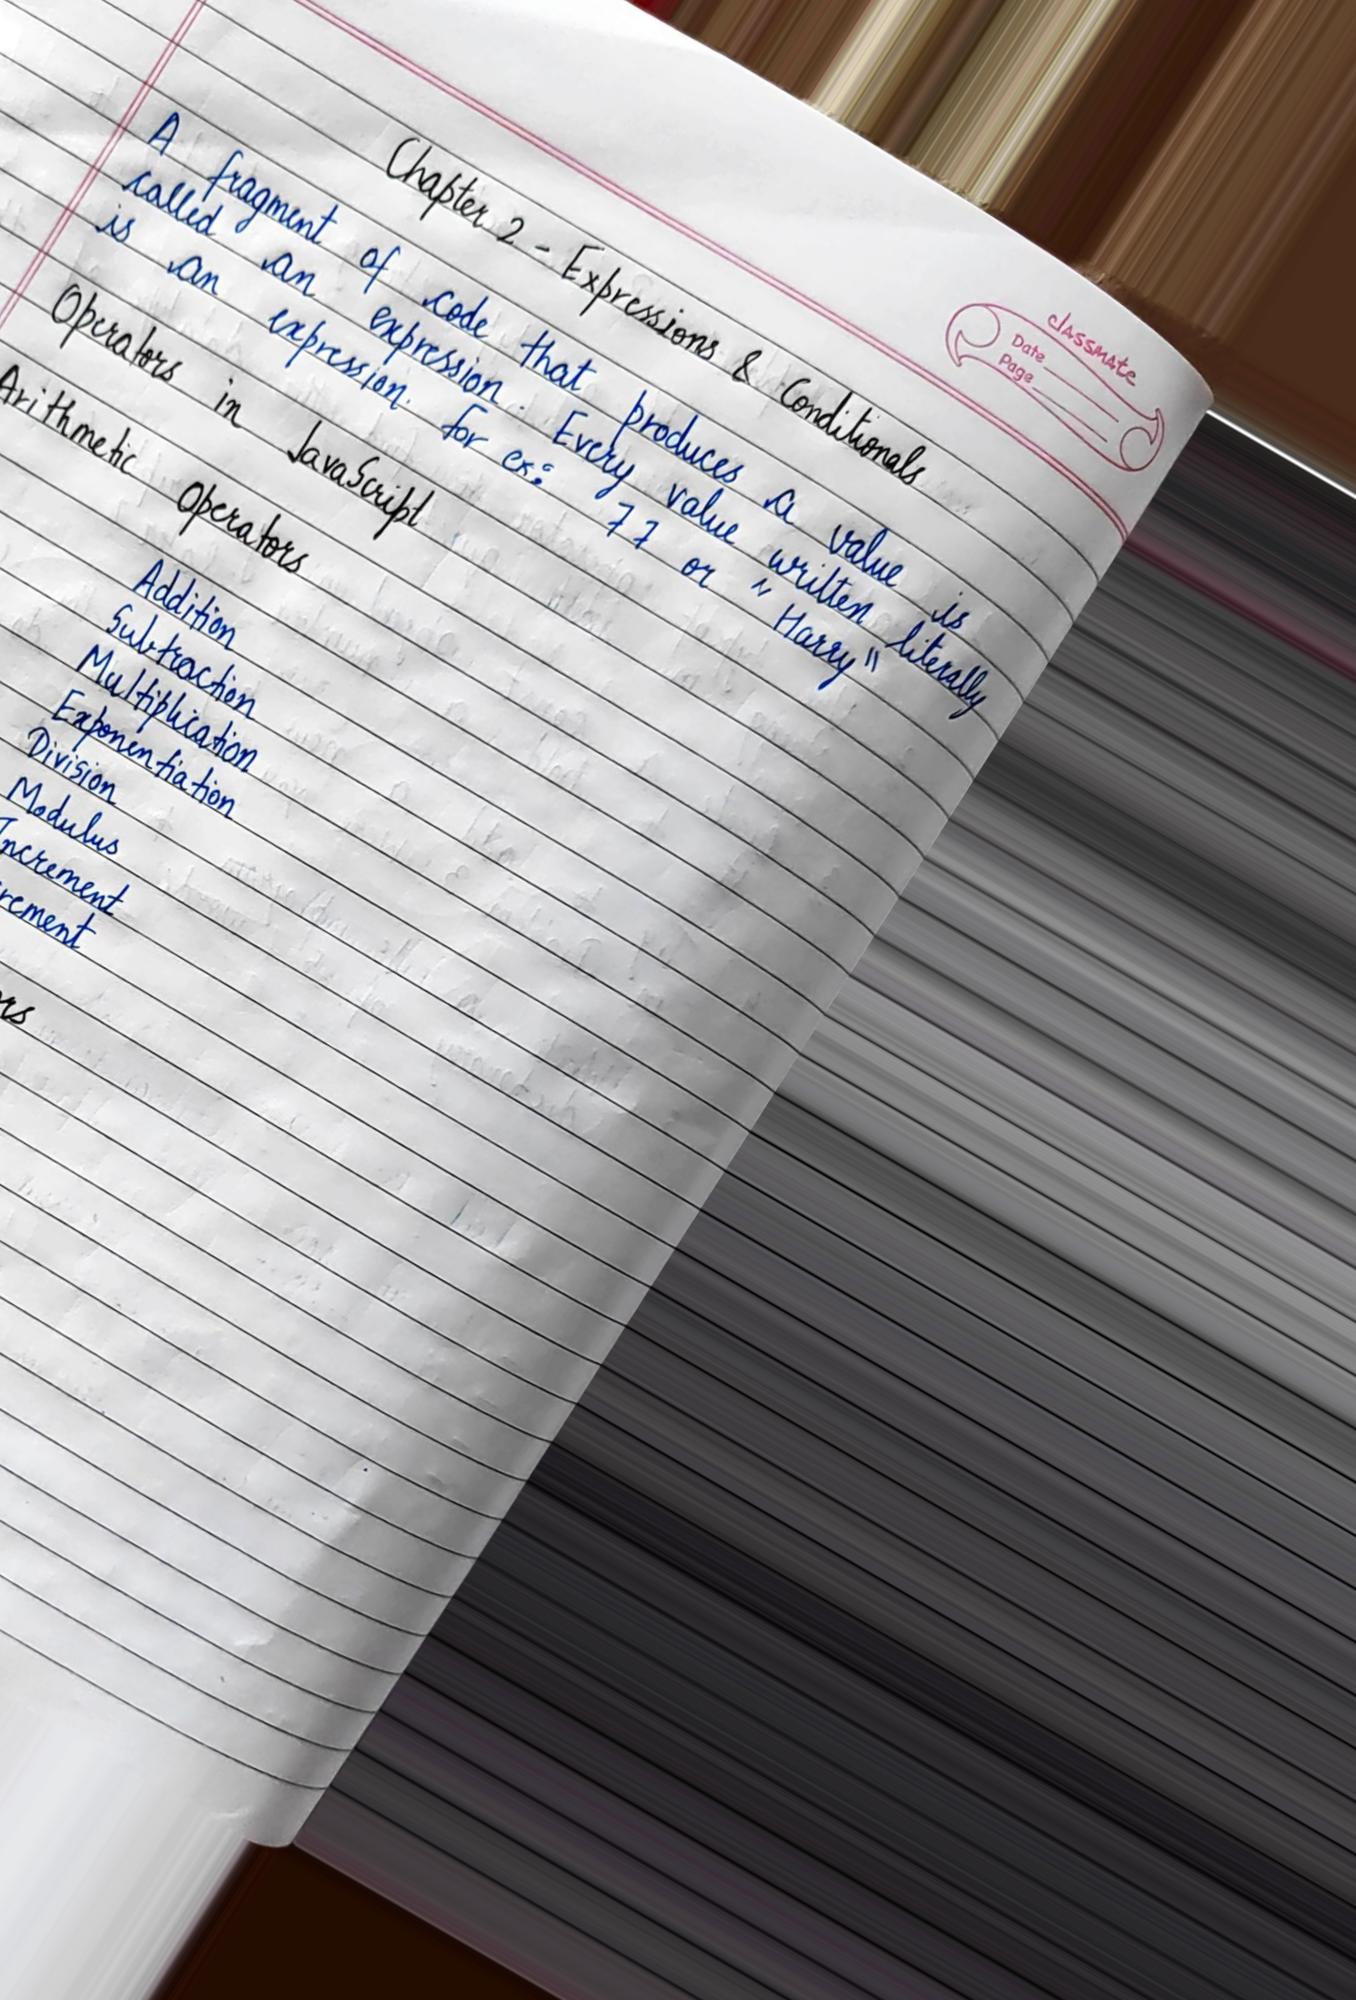 classmate
Date
Page
Chapter 2 - Expressions & Conditionals
A fragment of code that produces a value is
called an expression. Every value written literally
is an expression. for ex: 77 or "Harry"
Operators in JavaScript
Arithmetic Operators
Addition
Subtraction
Multiplication
Exponentiation
Division
Modulus
Increment
rement
rs